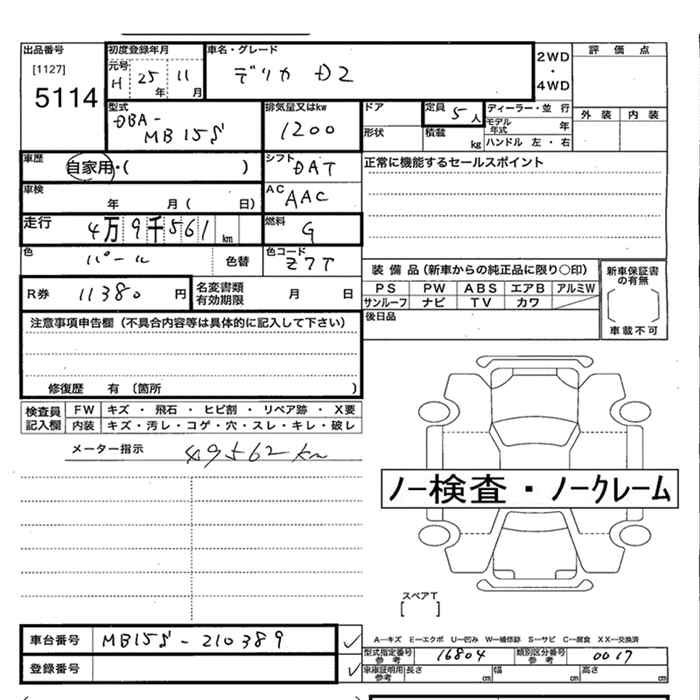 出品番号
[1127]
5114
初度登録年月
元号
H 25年 11月
車名・グレード
デリカ D2
2WD
・
4WD
評価点
外装 内装
型式
DBA-
MB15S
排気量又はkw
1200
ドア
形状
定員 5人
積載 kg
ディーラー・並行
モデル年式 年
ハンドル 左・右
車歴
自家用・( )
シフト
DAT
正常に機能するセールスポイント
車検
年 月( 日)
AC
AAC
走行
4万9千561km
燃料
G
色
パール
色替
色コード
Z7T
装備品(新車からの純正品に限り○印)
PS PW ABS エアB アルミW
サンルーフ ナビ TV カワ
後日品
新車保証書の有無
[ ]
車載不可
R券 11380円
名変書類有効期限 月 日
注意事項申告欄(不具合内容等は具体的に記入して下さい)
修復歴 有 (箇所 )
検査員記入欄
FW キズ・飛石・ヒビ割・リペア跡・X要
内装 キズ・汚レ・コゲ・穴・スレ・キレ・破レ
メーター指示 49562km
ノー検査・ノークレーム
スペアT
[ ]
車台番号 MB15S-210389
登録番号
A―キズ E―エクボ U―凹み W―補修跡 S―サビ C―腐食 XX―交換済
型式指定番号参考 16804
類別区分番号参考 0017
車庫証明用参考 長さ cm 幅 cm 高さ cm